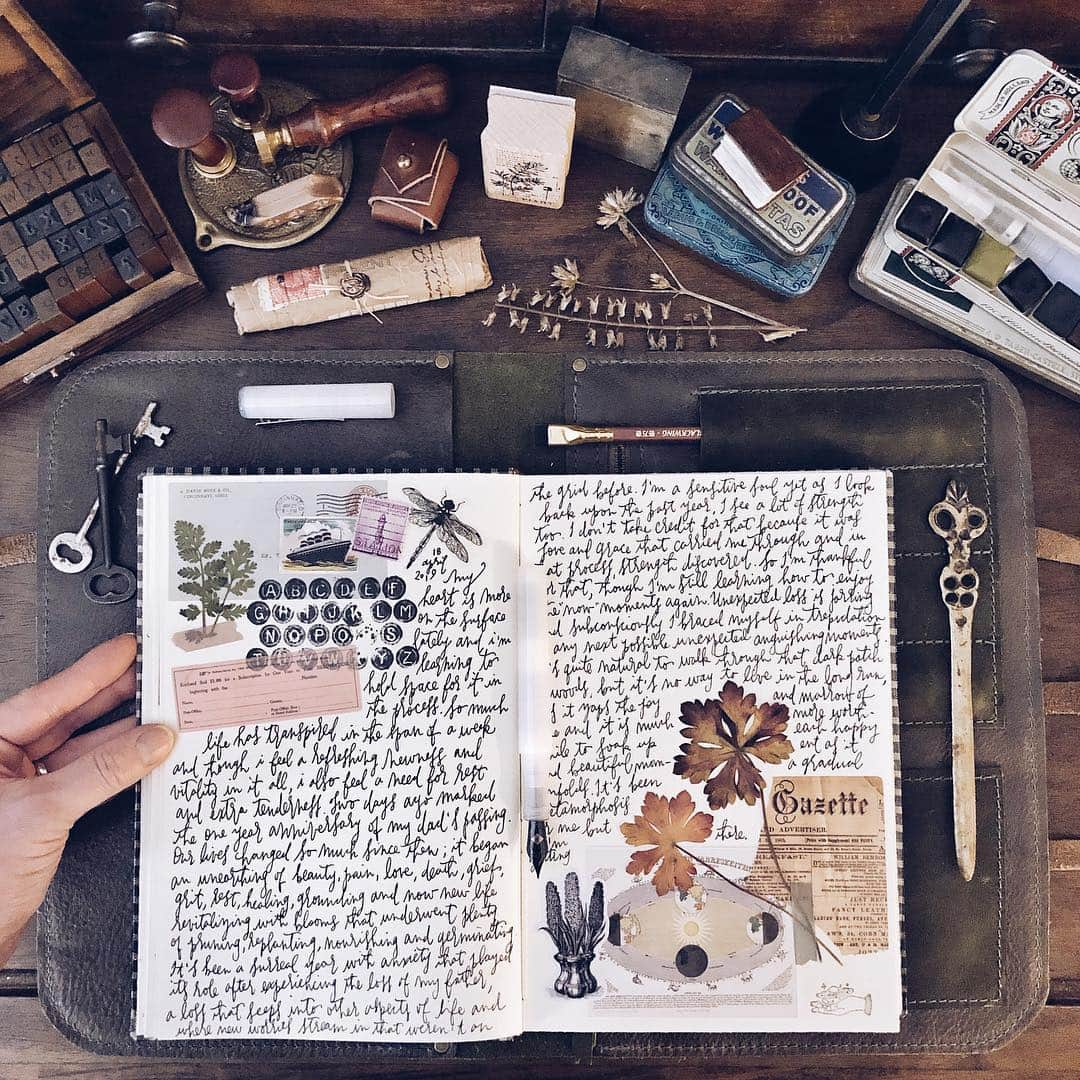 WATERPROOF
BLACKWING
A. DAVIS
CINCINNATI, OHIO
18
april
2019
A B C D E F
G H I J K L M
N O P Q R S
T U V W X Y Z
My
heart is more
on the surface
lately and i'm
learning to
hold space for it in
the process. So much
life has transpired in the span of a week
and though i feel a refreshing newness and
vitality in it all, i also feel a need for rest
and extra tenderness. Two days ago marked
the one year anniversary of my dad's passing.
Our lives changed so much since then; it began
an unearthing of beauty, pain, love, death, grief,
grit, rest, healing, grounding and now new life
revitalizing with blooms that underwent plenty
of pruning, replanting, nourishing and germinating.
It's been a surreal year with anxiety that played
its role after experiencing the loss of my father,
a loss that seeps into other aspects of life and
where new worries stream in that weren't on
the grid before. I'm a sensitive soul yet as I look
back upon the past year, I see a lot of strength
too. I don't take credit for that because it was
love and grace that carried me through and in
at process strength discovered. So I'm thankful
that, though I'm still learning how to enjoy
"now" moments again. Unexpected loss is jarring
d subconsciously I braced myself in trepidation
any next possible unexpected anguishing moments
s quite natural to walk through that dark patch
woods, but it's no way to live in the long run,
it zaps the joy and marrow of
e and it is much more worth
ile to soak up each happy
d beautiful mom- ent as it
nfolds. It's been a gradual
etamorphosis
me but there.
tting
Gazette
AND ADVERTISER
WILLIAM
FANCY LEATH